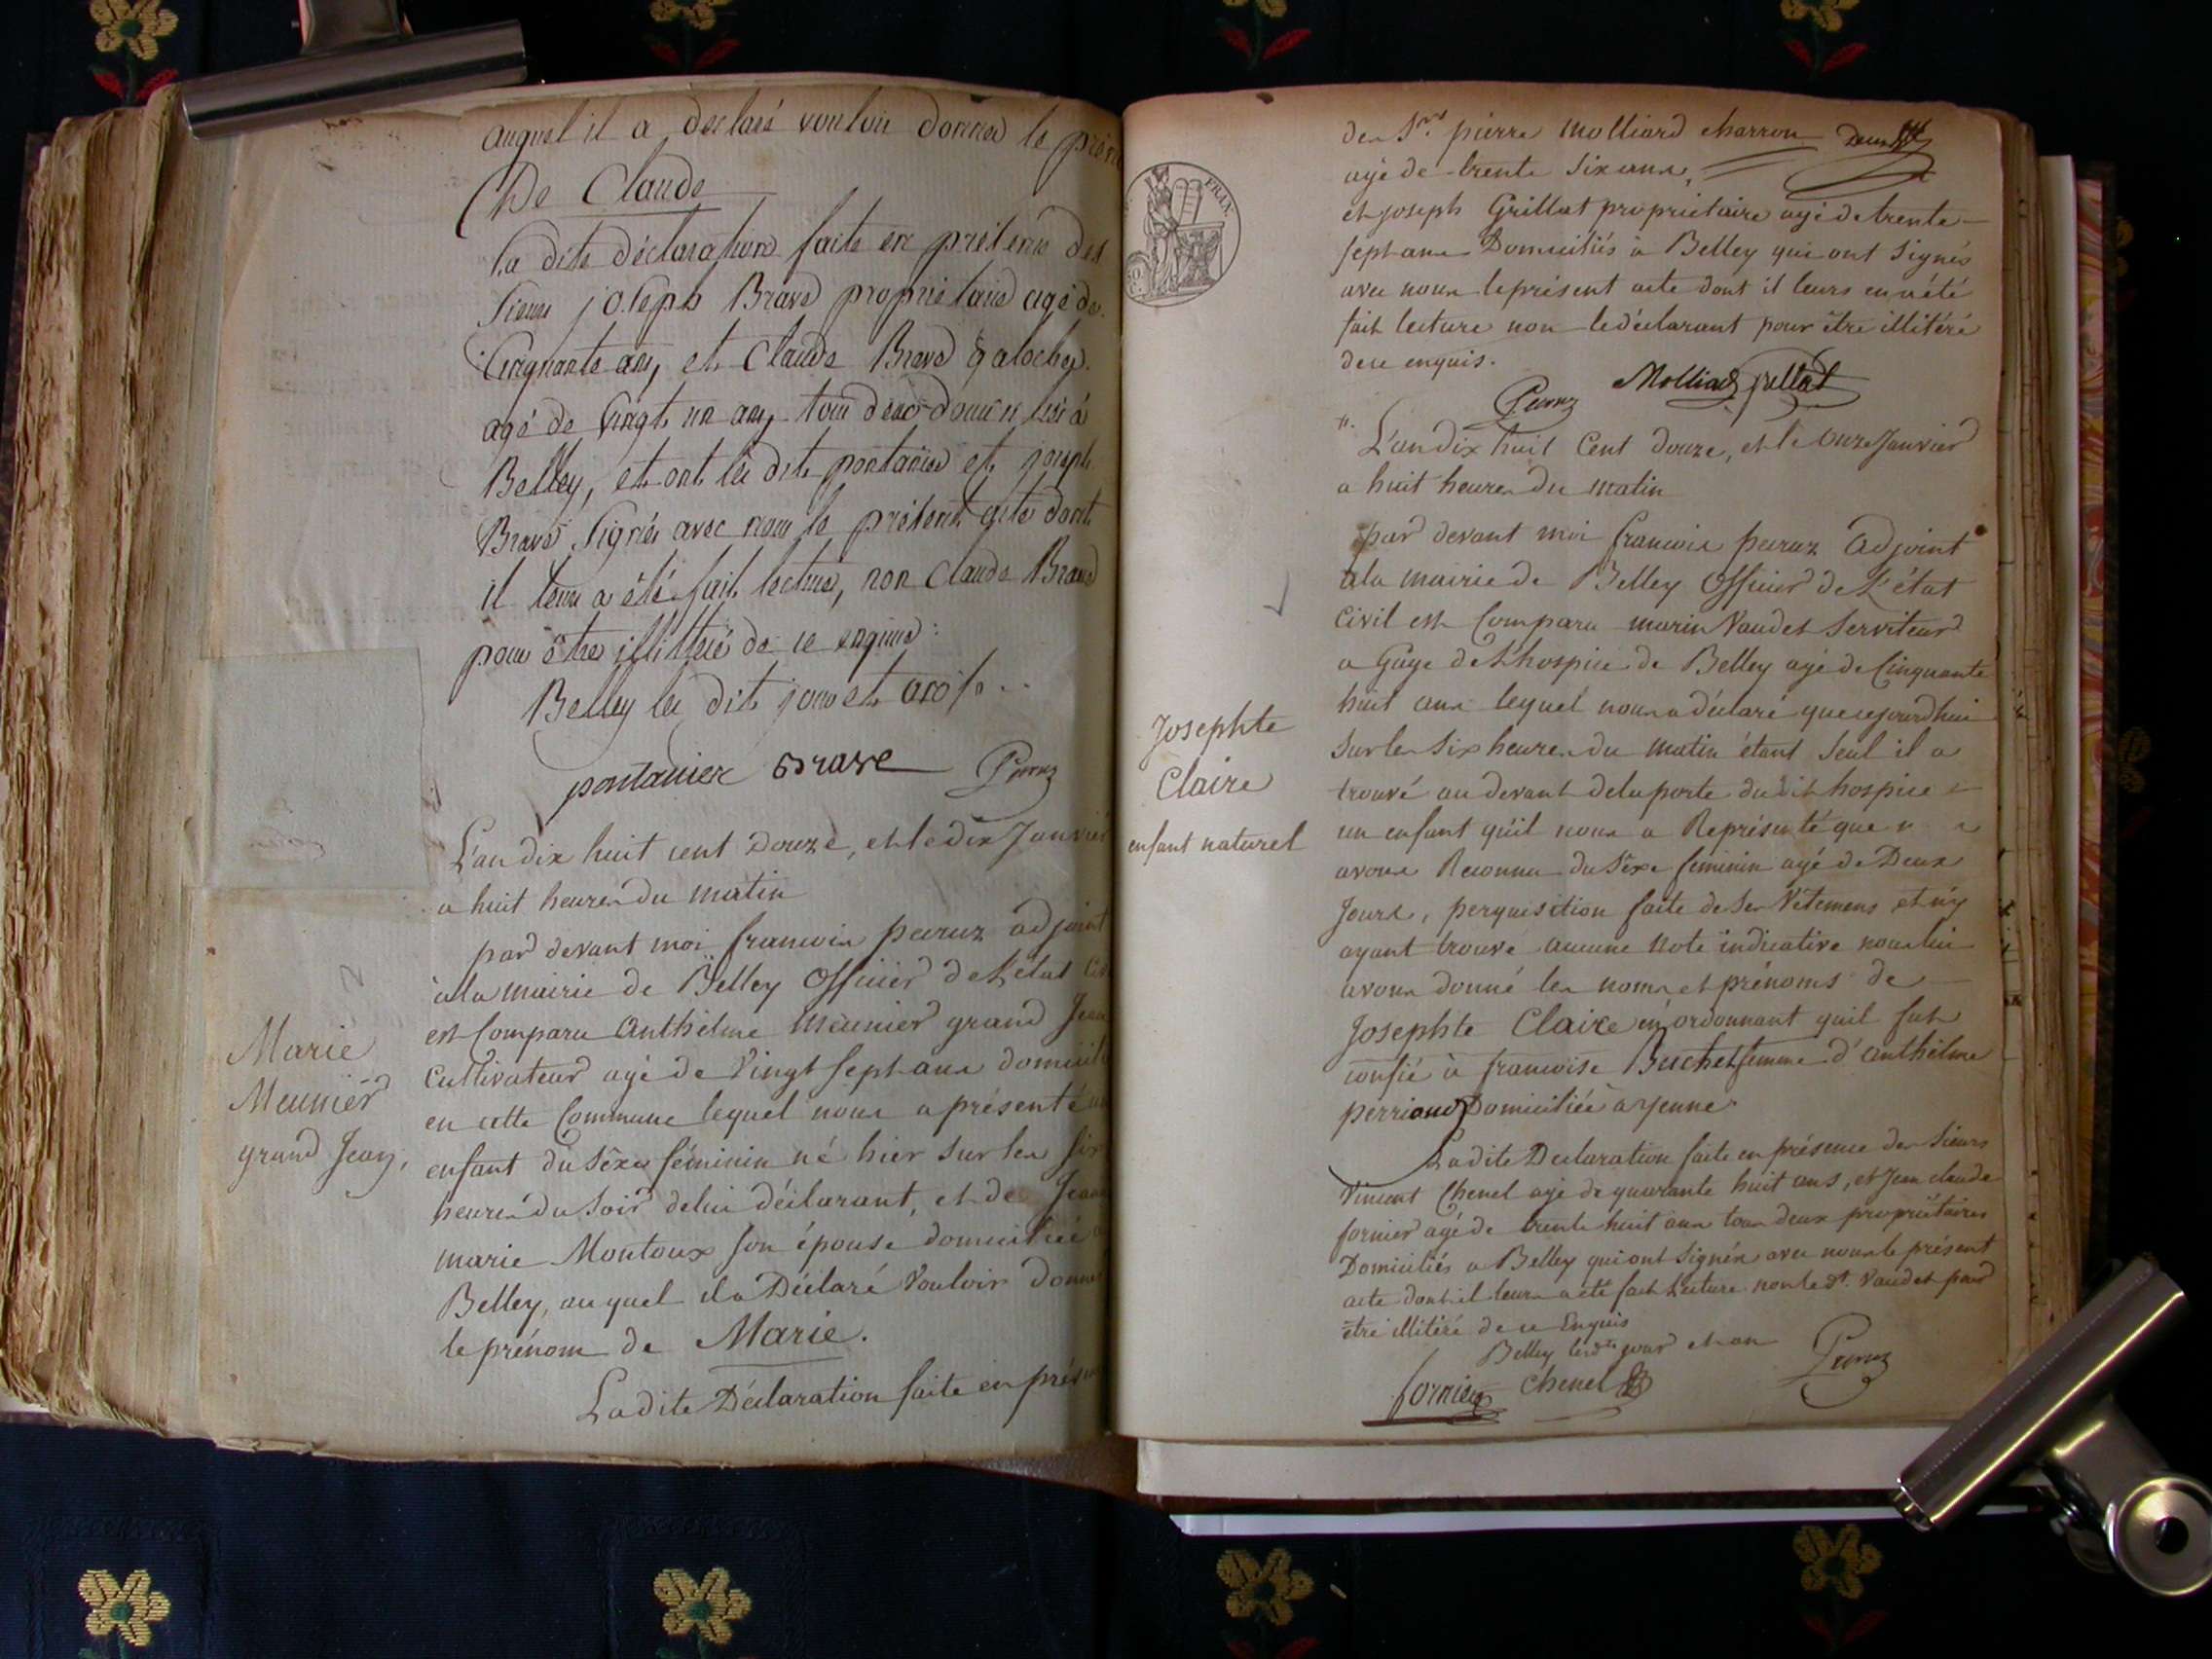 auquel il a déclaré vouloir donner le prén
De Claude
la dite déclaration faite en présence des
Sieurs joseph Brave propriétaire agé de
Cinquante ans, et Claude Brave galocher
agé de vingt un ans, tous deux domiciliés à
Belley, et ont les dits pontanier et joseph
Brave Signés avec nous le présent acte dont
il leur a été fait lecture, non Claude Brave
pour être illittéré de ce enquis.
Belley les dits jour et an
pontanier Brave Peruz
L'an dix huit cent Douze, et le dix Janvier
a huit heures du matin
par devant moi francois peeruz adjoint
à la mairie de Belley Officier de L'état Ci
est Comparu Anthelme Meunier grand Jean
Cultivateur agé de Vingt Sept ans domicili
en cette Commune lequel nous a présenté
enfant du Sèxe féminin né hier Sur les Six
heures du Soir de lui déclarant, et de Jean
marie Montoux Son épouse domiciliée
Belley, auquel il a Déclaré Vouloir donne
le prénom de Marie.
La dite Déclaration faite en prése
Marie
Meunier
grand Jean,
FRAN.
des Srs pierre Molliard charron
agé de trente Six ans,
et joseph Grillat propriétaire agé de trente
Sept ans Domiciliés à Belley qui ont Signés
avec nous le présent acte dont il leurs en a été
fait lecture non le déclarant pour être illitéré
de ce enquis.
Peruz Molliard jrillat
11.
L'an dix huit Cent douze, et le onze Janvier
a huit heures Du matin
par devant moi francois peeruz Adjoint
a la mairie de Belley Officier de L'état
Civil est Comparu marin Vaudet Serviteur
a Gage de L'hospice de Belley agé de Cinquante
huit ans lequel nous a déclaré que cejourdhui
Sur les Six heures du matin étant Seul il a
trouvé au devant de la porte dudit hospice
un enfant qu'il nous a Représenté que n
avons Reconnu du Sèxe féminin agé de Deux
Jours, perquisition faite de Ses Vêtemens et n'y
ayant trouvé aucune Note indicative nous lui
avons donné les noms et prénoms de
Josephte Claire en ordonnant qu'il fut
confié à francoise Buchet femme d'anthelme
perriand Domiciliée a yenne.
La dite Déclaration faite en présence des Sieurs
Vincent Chenel agé de quarante huit ans, et Jean claude
fornier agé de trente huit ans tous deux propriétaires
Domiciliés a Belley qui ont Signés avec nous le présent
acte dont il leurs a été fait Lecture non le dt. Vaudet pour
être illitéré de ce Enquis
Belley lesdts jour et an
fornier Chenel Peruz
Josephte
Claire
enfant naturel